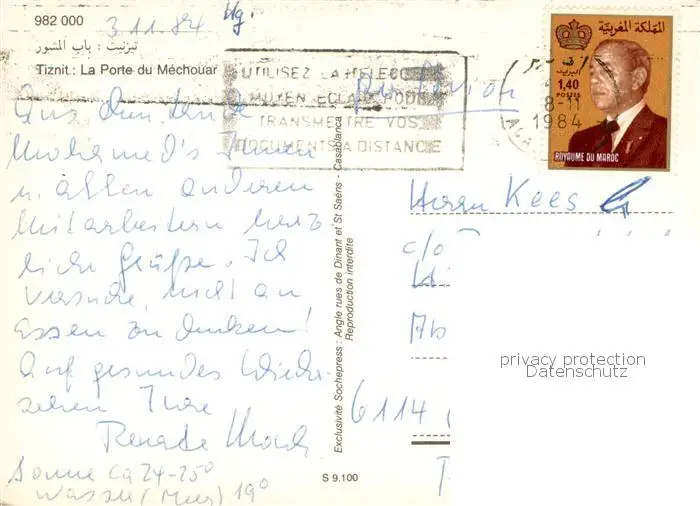 982 000
3.11.84
تيزنيت : باب المشور
Tiznit : La Porte du Méchouar
UTILISEZ LA TELEC
MOYEN ECLAIR POUR
TRANSMETTRE VOS
DOCUMENTS A DISTANCE
Par Avion
8-11
1984
المملكة المغربية
البريد
1,40
POSTES
ROYAUME DU MAROC
Aus dem Lande
Mohamed's Ihnen
u. allen anderen
Mitarbeitern herz-
liche Grüße. Ich
versuche, nicht an
Essen zu denken!
Auf gesundes Wieder-
sehen Ihre
Renate
Sonne ca 24-25°
Wasser (Meer) 19°
Exclusivité Sochepress : Angle rues de Dinant et St Saëns - Casablanca
Reproduction interdite
S 9.100
Herrn Kees
c/o
6114
privacy protection
Datenschutz